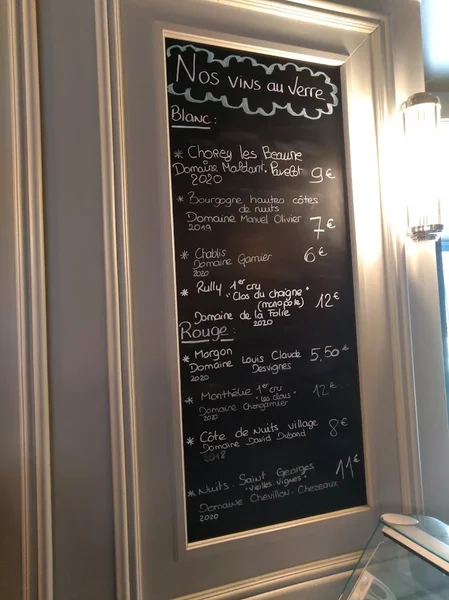 Nos vins au verre
Blanc :
* Chorey les Beaune
Domaine Maldant. Pauvelot 9€
2020
* Bourgogne hautes côtes
de nuits
Domaine Manuel Olivier 7€
2019
* Chablis
Domaine Garnier 6€
2020
* Rully 1er cru
"Clos du chaigne"
(monopole) 12€
Domaine de la Folie
2020
Rouge :
* Morgon
Domaine Louis Claude 5,50€
Desvignes
2020
* Monthélie 1er cru
"les clous" 12€
Domaine Changarnier
2020
* Côte de nuits village
Domaine David Duband 8€
2018
* Nuits. Saint Georges
"vieilles vignes" 11€
Domaine Chevillon. Chezeaux
2020